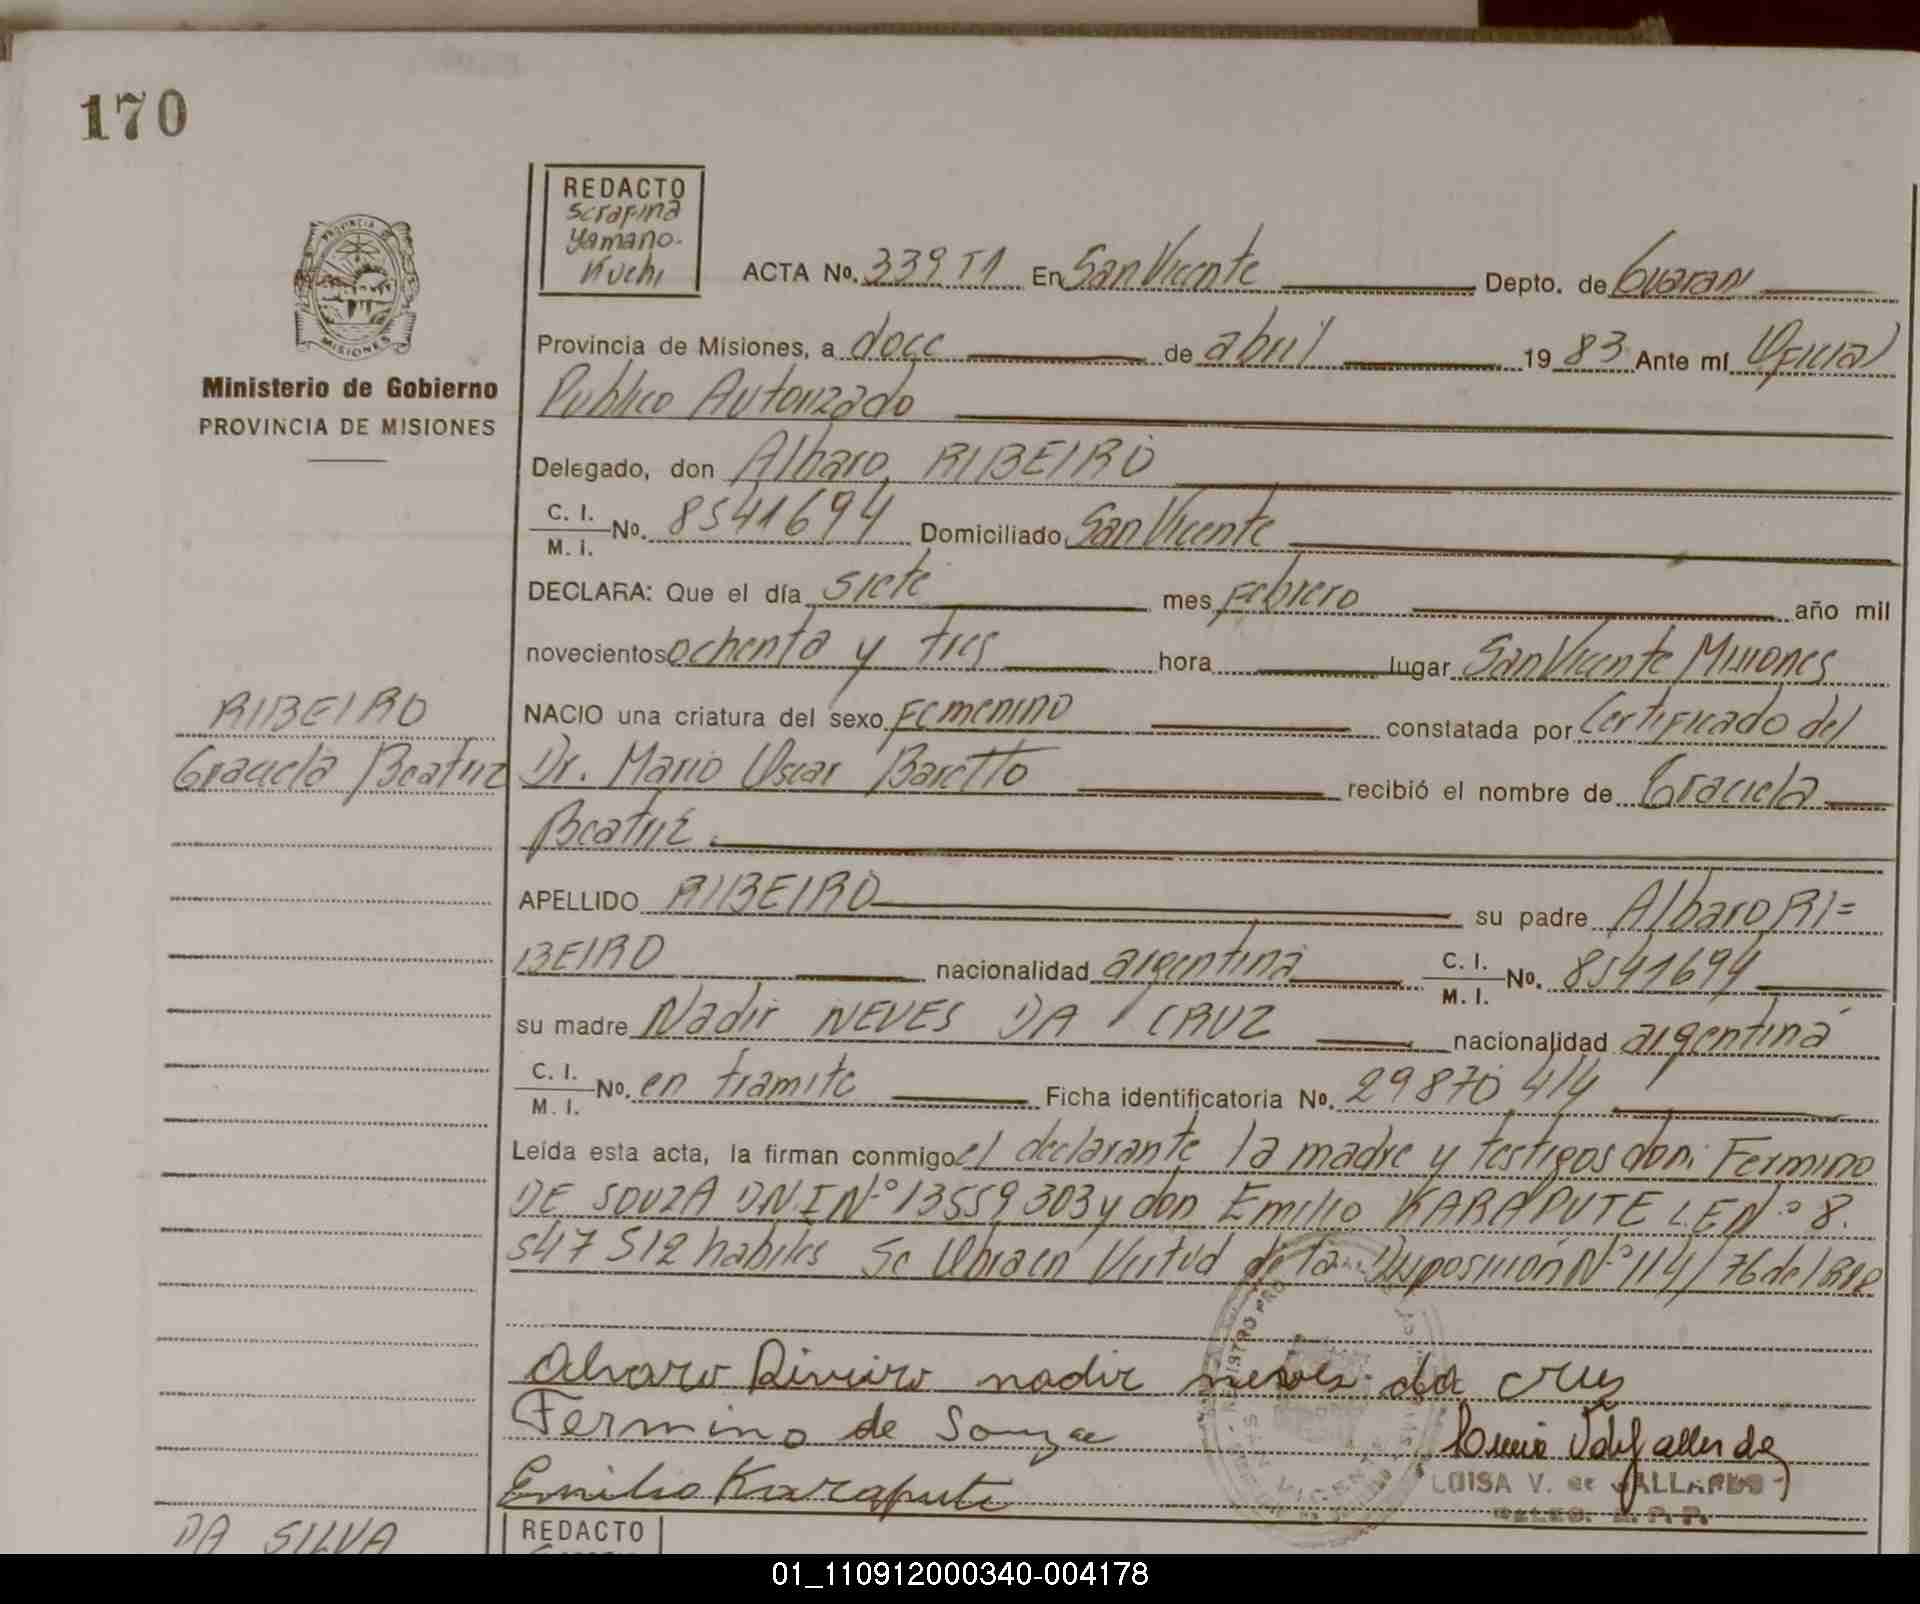 170
REDACTO
Serafina
Yamano-
Kuchi
ACTA No. 339 T1 En San Vicente Depto. de Guarani
PROVINCIA DE
MISIONES
Provincia de Misiones, a doce de abril 19 83 Ante mí Oficial
Ministerio de Gobierno
PROVINCIA DE MISIONES
Publico Autorizado
Delegado, don Albaro RIBEIRO
C. I.
M. I. No. 8541694 Domiciliado San Vicente
DECLARA: Que el día siete mes Febrero año mil
novecientos ochenta y tres hora lugar San Vicente Misiones
RIBEIRO
Graciela Beatriz
NACIO una criatura del sexo Femenino constatada por Certificado del
Dr. Mario Oscar Baretto recibió el nombre de Graciela
Beatriz.
APELLIDO RIBEIRO su padre Albaro RI=
BEIRO nacionalidad argentina C. I.
M. I. No. 8541694
su madre Nadir NEVES DA CRUZ nacionalidad argentina
C. I.
M. I. No. en tramite Ficha identificatoria No. 29870 414
Leída esta acta, la firman conmigo el declarante la madre y testigos don: Fermino
DE SOUZA D.N.I Nº 13559303 y don Emilio KARAPUTE L.E Nº 8.
547 512 habiles Se Labra en Virtud de la Disposición Nº 114/76 del RPP
Alvaro Riveiro nadir neves da cruz
Fermino de Souza
Emilio Karapute
LUISA V. de GALLARDO
DELEG. R. P. P.
DA SILVA
REDACTO
01_110912000340-004178